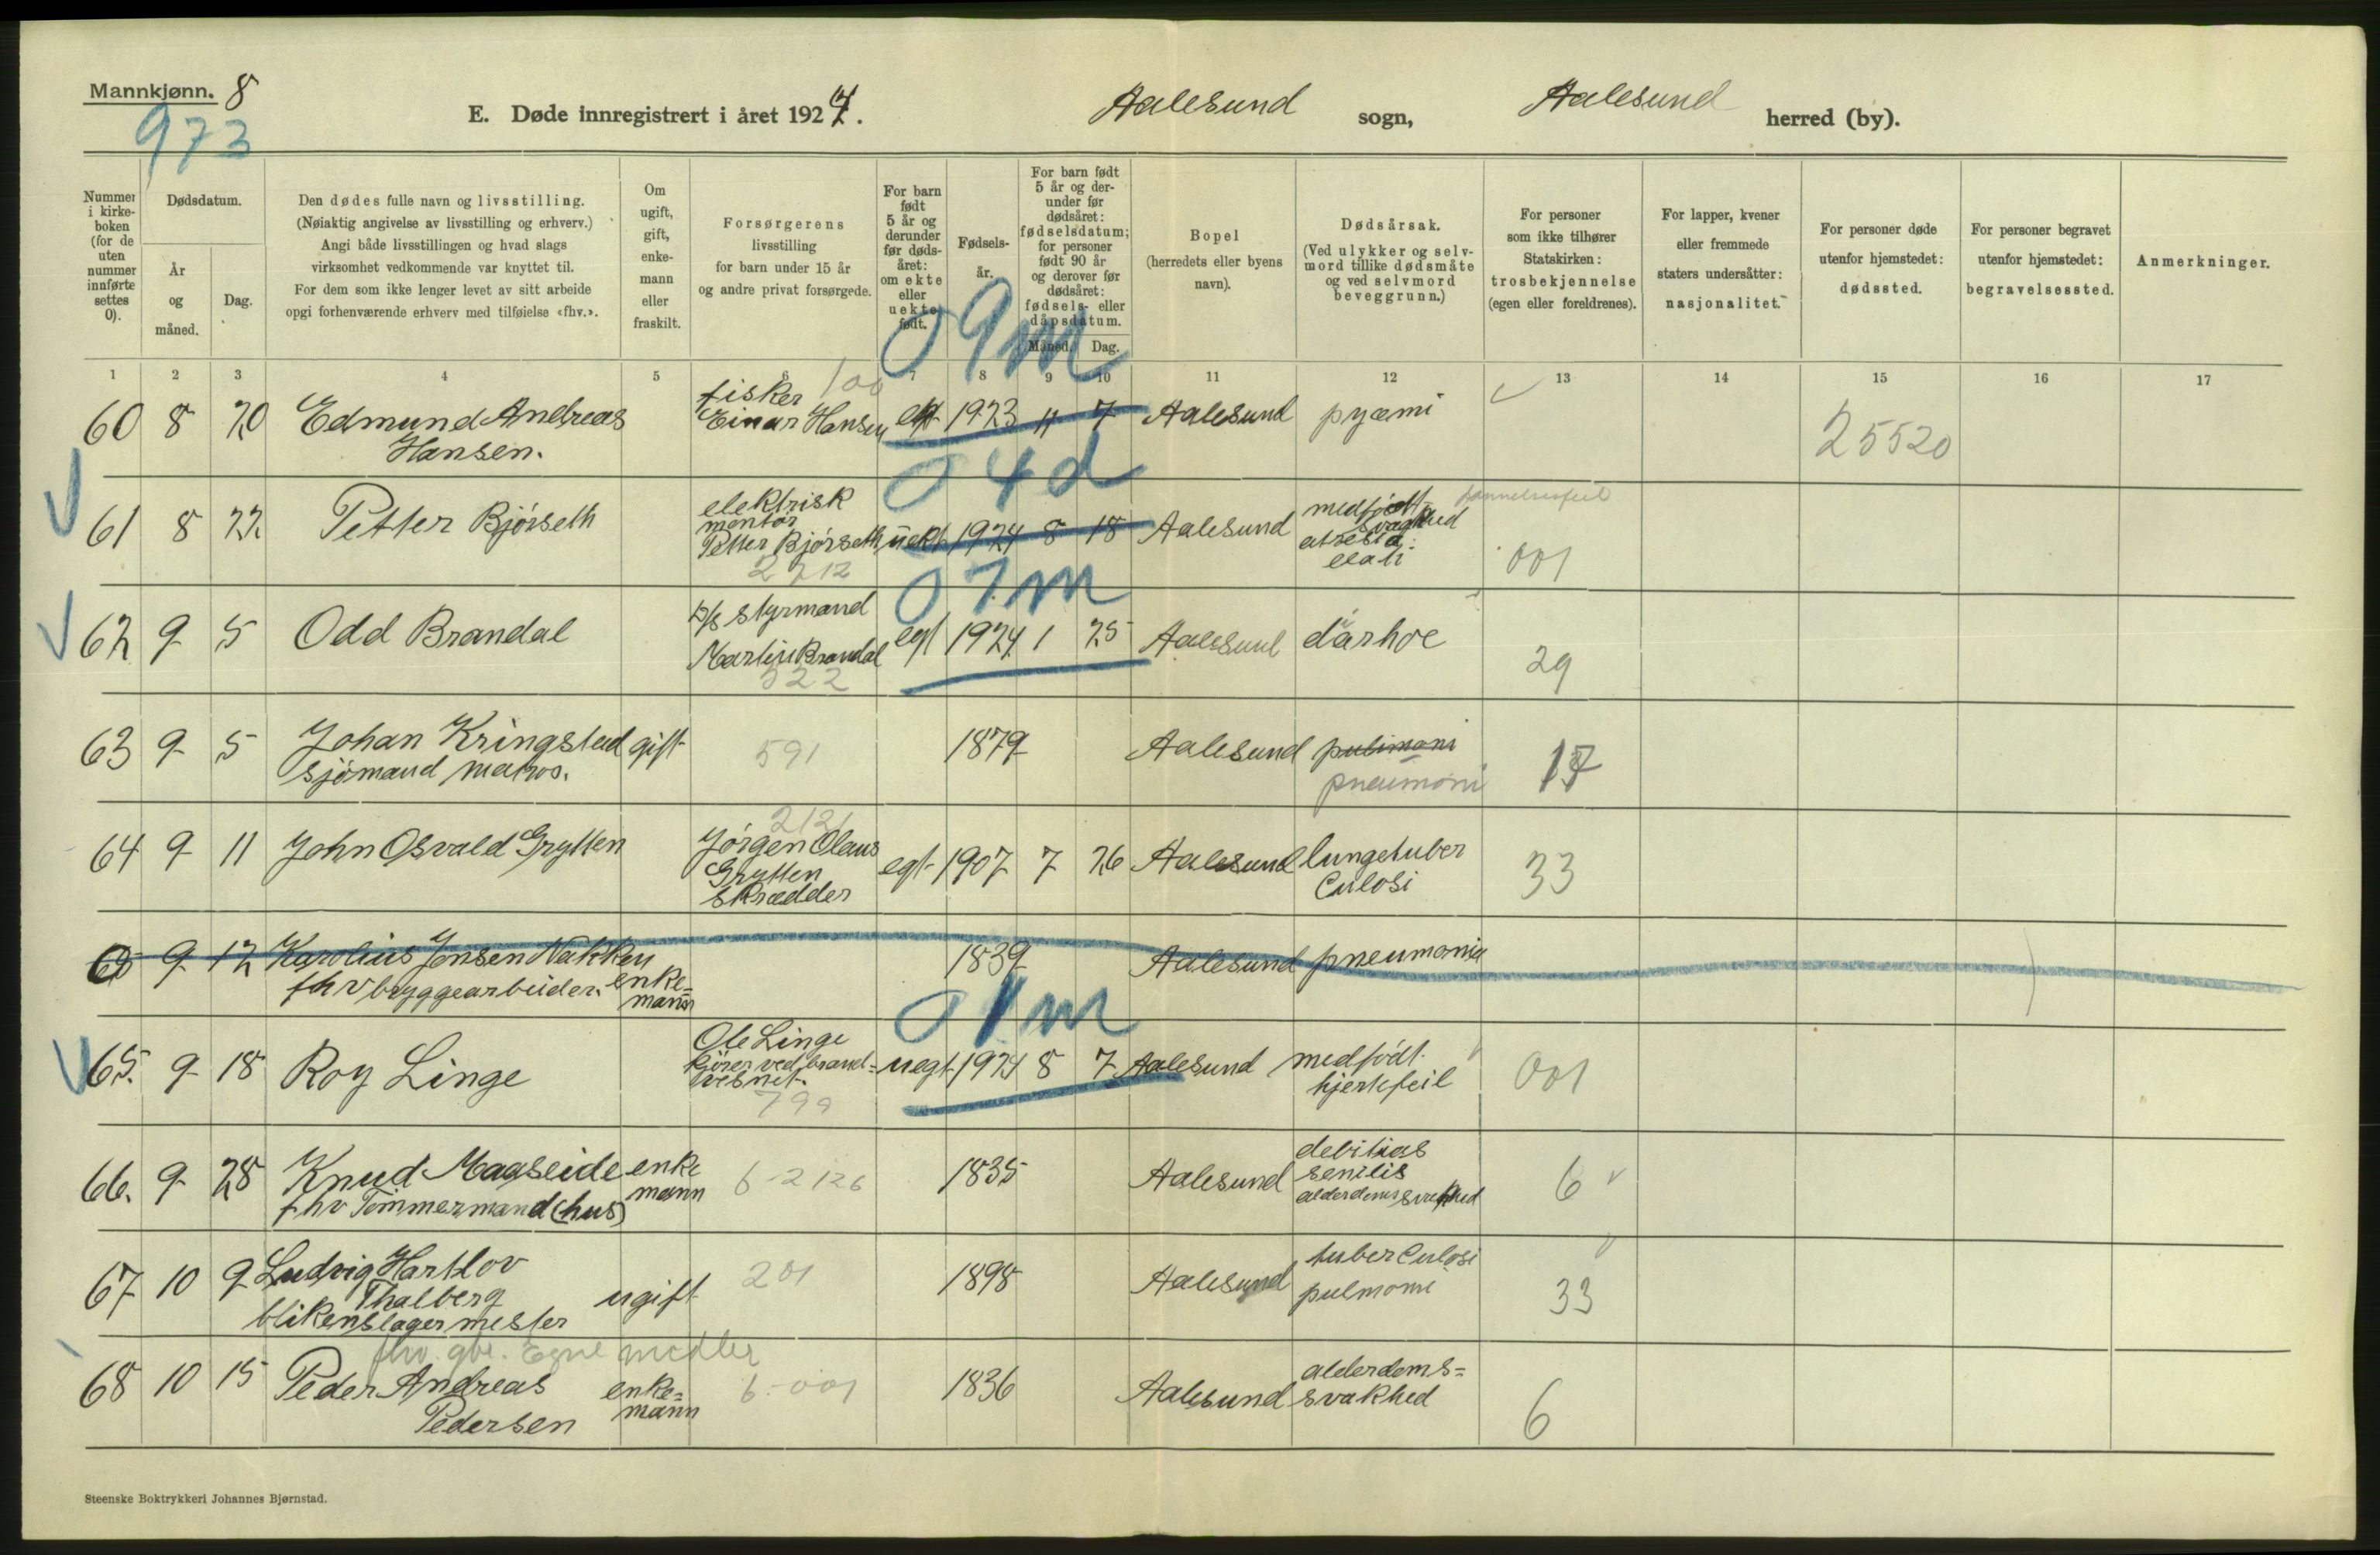 Mannkjønn. 8
973
E. Døde innregistrert i året 1924.
Aalesund sogn, Aalesund herred (by).
Nummer i kirkeboken (for de uten nummer innførte settes 0).
Dødsdatum.
År og måned.
Dag.
Den dødes fulle navn og livsstilling.
(Nøiaktig angivelse av livsstilling og erhverv.)
Angi både livsstillingen og hvad slags
virksomhet vedkommende var knyttet til.
For dem som ikke lenger levet av sitt arbeide
opgi forhenværende erhverv med tilføielse «fhv.».
Om ugift, gift, enkemann eller fraskilt.
Forsørgerens
livsstilling
for barn under 15 år
og andre privat forsørgede.
For barn født 5 år og derunder før dødsåret: om ekte eller uekte født.
Fødselsår.
For barn født 5 år og derunder før dødsåret: fødselsdatum; for personer født 90 år og derover før dødsåret: fødsels- eller dåpsdatum.
Måned. Dag.
Bopel
(herredets eller byens
navn).
Dødsårsak.
(Ved ulykker og selvmord tillike dødsmåte og ved selvmord beveggrunn.)
For personer
som ikke tilhører
Statskirken:
trosbekjennelse
(egen eller foreldrenes).
For lapper, kvener
eller fremmede
staters undersåtter:
nasjonalitet.
For personer døde
utenfor hjemstedet:
dødssted.
For personer begravet
utenfor hjemstedet:
begravelsessted.
Anmerkninger.
1 2 3 4 5 6 7 8 9 10 11 12 13 14 15 16 17
0 9 m
fisker 100
60 8 20 Edmund Andreas Einar Hansen ekt 1923 11 7 Aalesund pyæmi
Hansen. 25520
0 4 d
elektrisk medfödt
61 8 22 Petter Björseth montör 1924 8 18 Aalesund svaghed
Petter Björseth uekt
2712 001
0 7 m
62 9 5 Odd Brandal D/S styrmand egt 1924 1 25 Aalesund diarhoe
Martin Brandal
322 29
63 9 5 Johan Kringstad gift 591 1879 Aalesund pulimoni
sjömand matros. pneumoni 17
2121
64 9 11 John Osvald Grytten Jörgen Olaus egt 1907 7 26 Aalesund lungetuber
Grytten culosi 33
Skrædder
65 9 12 Karolius Jensen Nakken 1839 Aalesund pneumonia
fhv bryggearbeider. enke=
mann
0 1 m
Ole Linge
65. 9 18 Roy Linge kjörer ved brand= uegt 1924 8 7 Aalesund medfödt
vesnet. hjertefeil 001
799
debilitas
66. 9 28 Knud Maaseide enke 6-2126 1835 Aalesund senilis 6
fhv Tömmermand (hus) mann alderdomssvakhed
67 10 9 Ludvig Hartlov 201 1898 Aalesund tuberculosi
Thalberg ugift pulmoni 33
blikenslagermester
fhv. gbr. Egne midler
68 10 15 Peder Andreas enke= 6-001 1836 Aalesund alderdoms=
Pedersen mann svakhed 6
Steenske Boktrykkeri Johannes Bjørnstad.